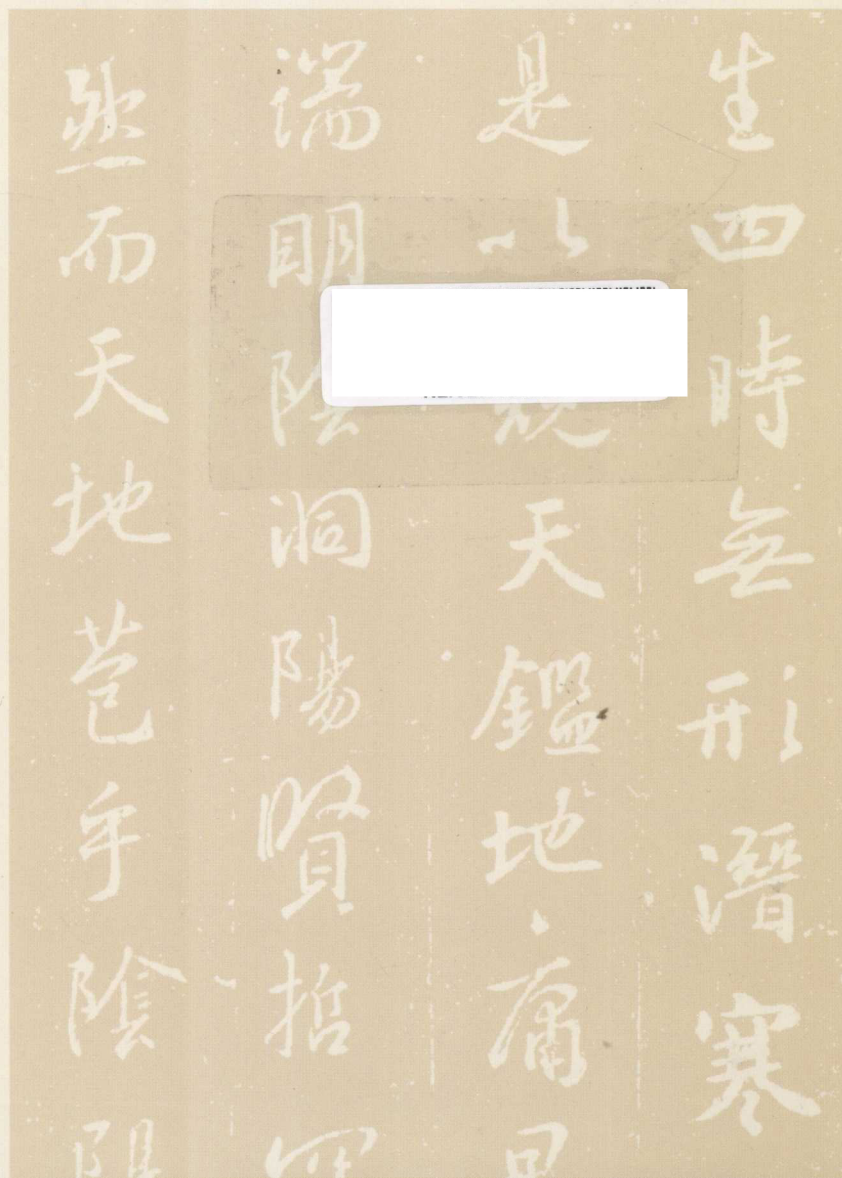 生四時無形潛寒
是以天鑑地庸
端明陰洞陽賢哲
然而天地苞乎陰陽